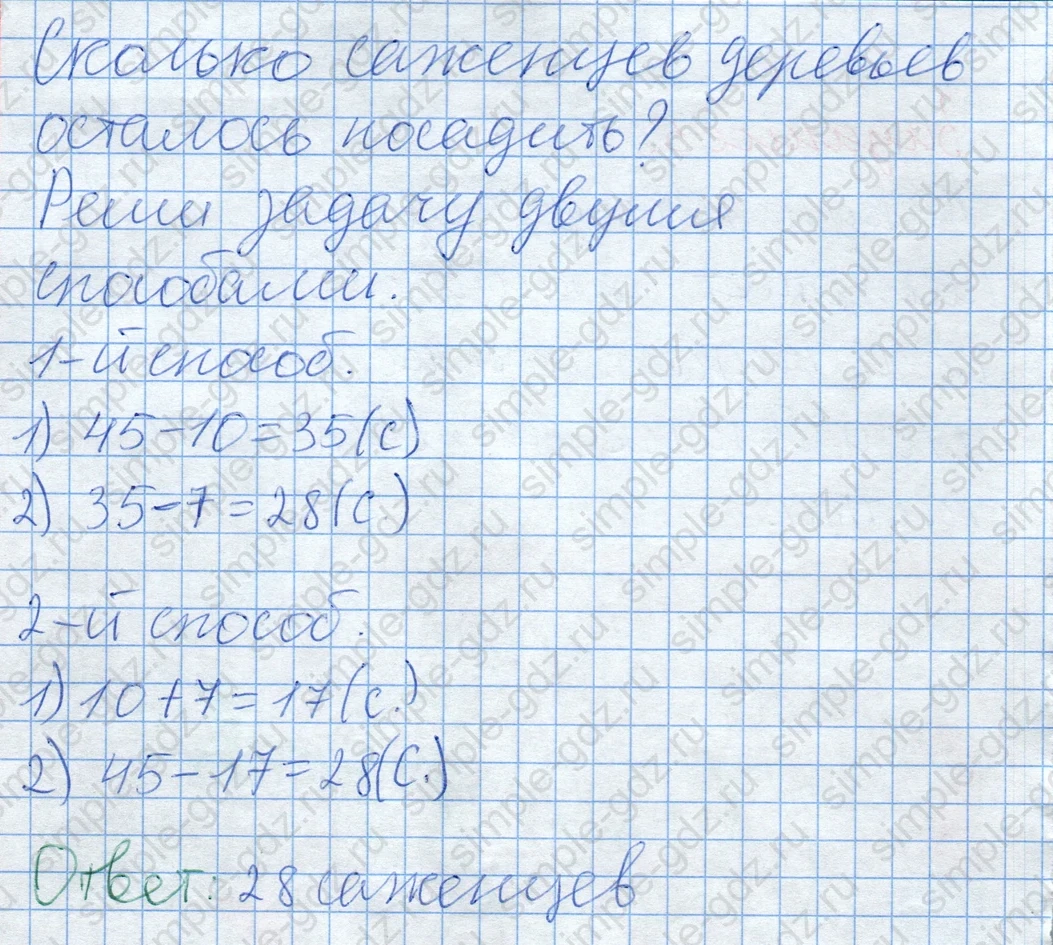 Сколько саженцев деревьев
осталось посадить?
Реши задачу двумя
способами.
1-й способ.
1) 45-10=35(с)
2) 35-7=28(с.)
2-й способ.
1) 10+7=17(с.)
2) 45-17=28(с.)
Ответ: 28 саженцев
simple-gdz.ru